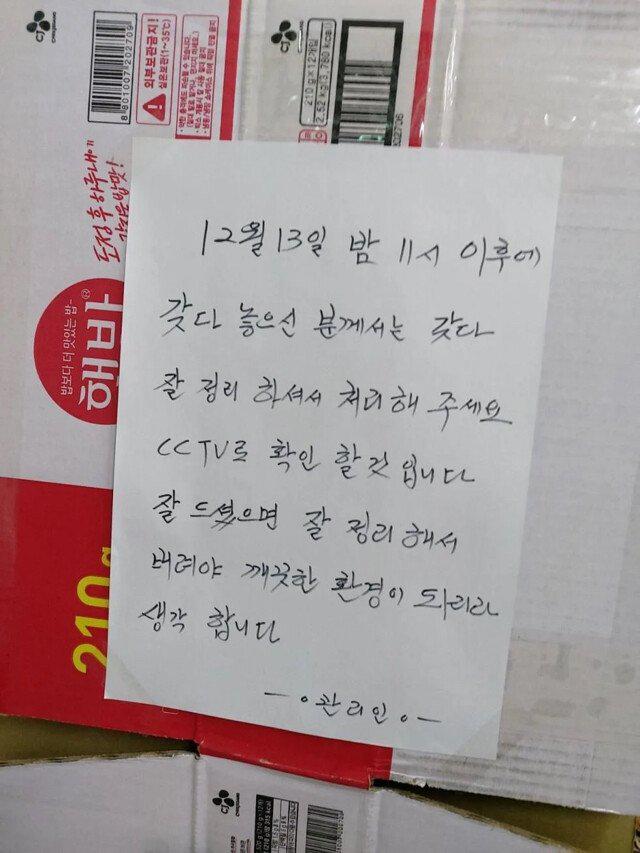 CJ
8801007202705
외부보관금지!
실온보관(1~35℃)
210 g×12개입
2.52 kg(3,780 kcal)
도정 후 하루내에
햇반
밥보다 더 맛있는 밥
210 g
12월 13일 밤 11시 이후에
갖다 놓으신 분께서는 갖다
잘 정리 하셔서 처리해 주세요
CCTV로 확인 할것 입니다
잘 드셨으면 잘 정리해서
버려야 깨끗한 환경이 되리라
생각 합니다
관리인
CJ